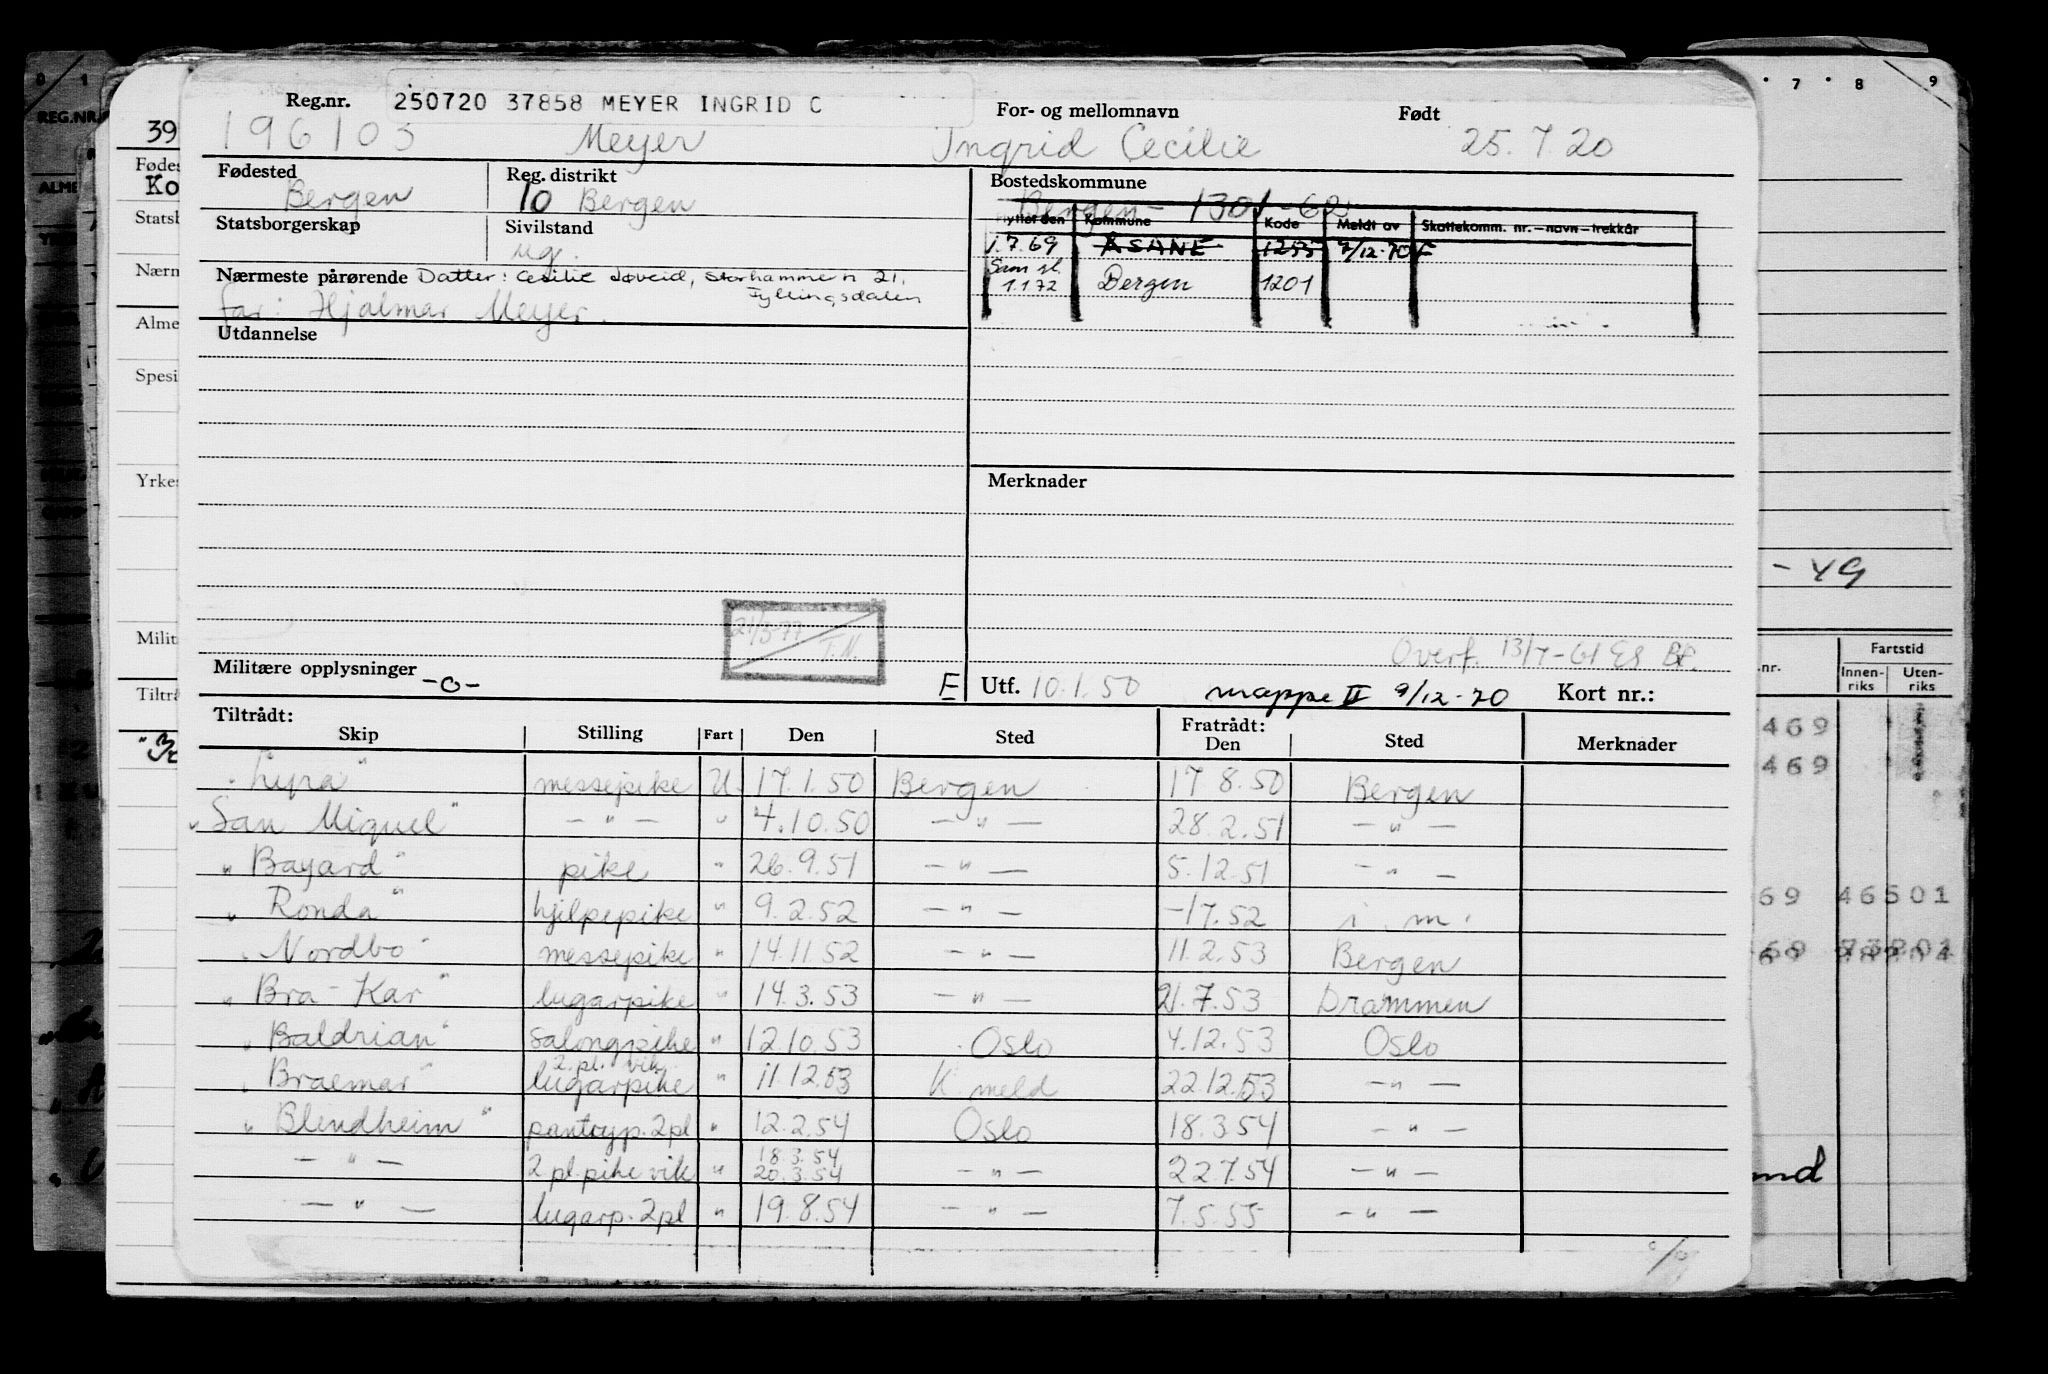 Reg.nr. 250720 37858 MEYER INGRID C For- og mellomnavn Født
196103 Meyer Ingrid Cecilie 25.7.20
Fødested Reg. distrikt Bostedskommune
Bergen 10 Bergen Bergen - 1301-62
Statsborgerskap Sivilstand
ug.
Flyttet den Kommune Kode Meldt av Skattekomm. nr. – navn – trekkår
1.7.69 ÅSANE 1255 7/12-70 F
Sam st.
1.1.72 Bergen 1201
Nærmeste pårørende Datter: Cecilie Søveid, Storhammeren 21,
Fyllingsdalen
far: Hjalmar Meyer.
Utdannelse
Merknader
21/3-77
T.N.
Overf. 13/7-61 ES BP.
Militære opplysninger -o- E Utf. 10.1.50 mappe II 9/12-70 Kort nr.:
Tiltrådt: Fratrådt:
Skip Stilling Fart Den Sted Den Sted Merknader
"Lyra" messepike U. 17.1.50 Bergen 17.8.50 Bergen
"San Miguel" — " — " 4.10.50 — " — 28.2.51 — " —
"Bayard" pike " 26.9.51 — " — 5.12.51 — " —
"Ronda" hjelpepike " 9.2.52 — " — -17.52 i. m.
"Nordbo" messepike " 14.11.52 — " — 11.2.53 Bergen
"Bra-Kar" lugarpike " 14.3.53 — " — 21.7.53 Drammen
"Baldrian" salongpike " 12.10.53 Oslo 4.12.53 Oslo
2.pl. vik
"Braemar" lugarpike " 11.12.53 K meld 22.12.53 — " —
"Blendheim" pantryp. 2pl " 12.2.54 Oslo 18.3.54 — " —
18.3.54
— " — 2 pl. pike vik " 20.3.54 — " — 22.7.54 — " —
— " — lugarp. 2pl " 19.8.54 — " — 7.5.55 — " —
REG.NR.
39
Ko
Statsb
Nærm
Alme
Spesi
Yrkes
Milit
Tiltrå
7 8 9
- 49
Fartstid
.nr. Innen-riks Uten-riks
469
469
69 46501
69